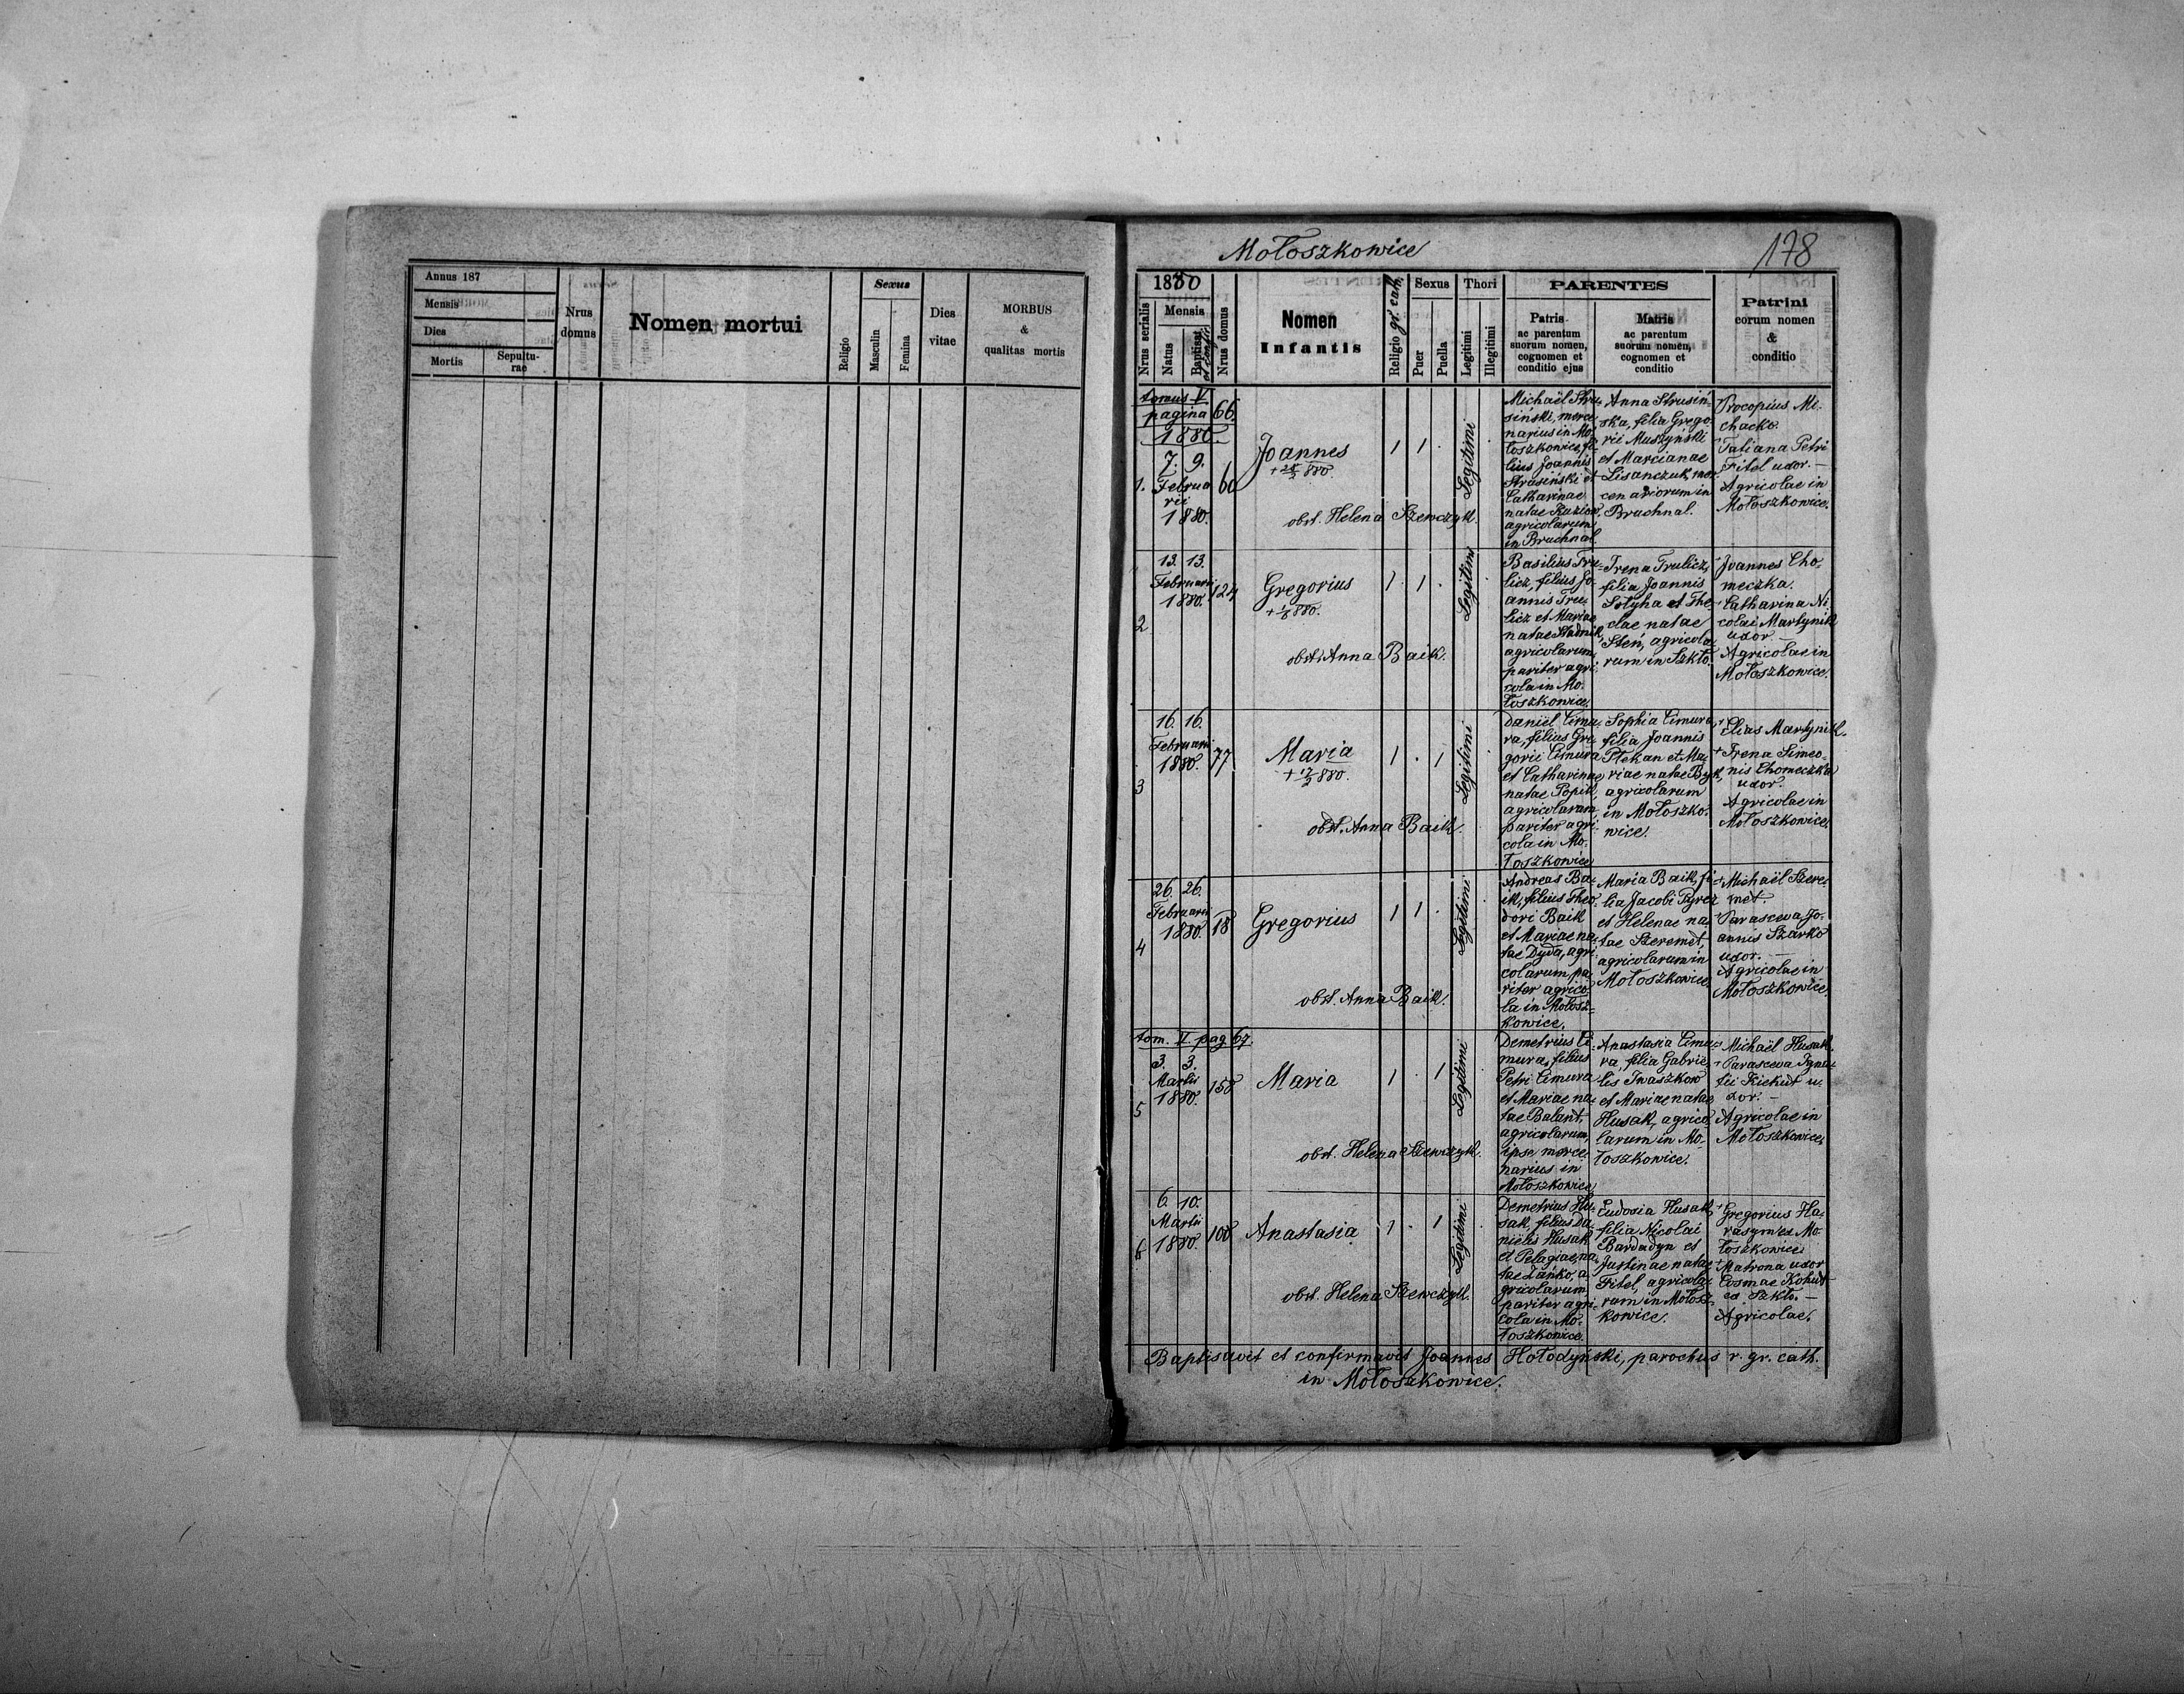 Annus 187
Mensis
Dies
Mortis
Sepultu-
rae
Nrus
domus
Nomen mortui
Religio
Sexus
Masculin
Femina
Dies
vitae
MORBUS
&
qualitas mortis
Mołoszkowice
178
1880
Nrus serialis
Mensis
Natus
Baptisat.
et confir.
Nrus domus
Nomen
Infantis
Religio gr. cath.
Sexus
Puer
Puella
Thori
Legitimi
Illegitimi
PARENTES
Patris
ac parentum
suorum nomen,
cognomen et
conditio ejus
Matris
ac parentum
suorum nomen,
cognomen et
conditio
Patrini
eorum nomen
&
conditio
tomus V.
pagina 66.
1880.
1.
7. 9.
Februa
rii
1880.
60
Joannes
obst. Helena Szewczyk.
1 1 .
Legitimi
Michaël Stru-
siński, merce
narius in Mo
łoszkowice, fi-
lius Joannis
Strusiński et
Catharinae
natae
agricolarum
in Bruchnal.
Anna Strusiń-
ska, filia Grego-
rii Muszyński
et Marcianae
Lisanczuk, mer-
cenariorum in
Bruchnal.
Procopius Mi-
chacko.
Tatiana Petri
Fitel uxor. —
Agricolae in
Mołoszkowice.
2
13. 13.
Februarii
1880.
124
Gregorius
obst. Anna Baik.
1. 1.
Legitimi
Basilius Tru-
licz, filius Jo-
annis Tru-
licz et Mariae
natae Stadnik,
agricolarum,
pariter agri-
cola in Mo-
łoszkowice.
Irena Trulicz,
filia Joannis
Sołyha et The-
clae natae
Steń, agricola-
rum in Szkło.
Joannes Cho-
meczka.
Catharina Ni-
colai Martynik
uxor —
Agricolae in
Mołoszkowice.
3
16. 16.
Februarii
1880.
77
Maria
obst. Anna Baik.
1 . 1
Legitimi
Daniel Cimu-
ra, filius Gre-
gorii Cimura
et Catharinae
natae Popik,
agricolarum,
pariter agri-
cola in Mo-
łoszkowice
Sophia Cimura,
filia Joannis
Ptekan et Ma-
riae natae Byk,
agricolarum
in Mołoszko-
wice.
Elias Martynik.
Irena Simeo-
nis Chomeczka
uxor.
Agricolae in
Mołoszkowice.
4
26. 26.
Februarii
1880.
18
Gregorius
obst. Anna Baik.
1 1 .
Legitimi
Andreas Ba-
ik, filius Theo-
dori Baik
et Mariae na-
tae Dyda, agri-
colarum, pa-
riter agrico-
la in Mołosz-
kowice.
Maria Baik, fi-
lia Jacobi Pyrez
et Helenae na-
tae Szeremet,
agricolarum in
Mołoszkowice
Michaël Szere-
met.
Parasceva Jo-
annis Szarko
uxor. —
Agricolae in
Mołoszkowice.
tom. V. pag. 67.
5
3. 3.
Martii
1880.
158
Maria
obst. Helena Szewczyk.
1 . 1
Legitimi
Demetrius Ci-
mura, filius
Petri Cimura
et Mariae na-
tae Balant,
agricolarum,
ipse merce-
narius in
Mołoszkowice
Anastasia Cimu-
ra, filia Gabrie-
lis Iwaszkow
et Mariae natae
Husak, agrico-
larum in Mo-
łoszkowice.
Michaël Husak.
Parasceva Igna-
tii Kiekut u-
xor. —
Agricolae in
Mołoszkowice.
6
6. 10.
Martii
1880.
108
Anastasia
obst. Helena Szewczyk.
1 . 1
Legitimi
Demetrius Hu-
sak, filius Da-
nielis Husak
et Pelagiae na-
tae Łańko, a-
gricolarum,
pariter agri-
cola in Mo-
łoszkowice.
Eudosia Husak,
filia Nicolai
Bardadyn et
Justinae natae
Fitel, agricola-
rum in Mołosz-
kowice.
Gregorius Ha-
rasym ex Mo-
łoszkowice.
Matrona uxor
Cosmae Kohut
ex Szkło. —
Agricolae.
Baptisavit et confirmavit Joannes Hołodyński, parochus r. gr. cath.
in Mołoszkowice.